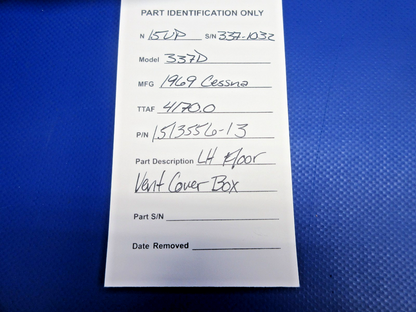 PART IDENTIFICATION ONLY
N 15UP S/N 337-1032
Model 337D
MFG 1969 Cessna
TTAF 4170.0
P/N 1513556-13
Part Description LH Floor
Vent Cover Box
Part S/N
Date Removed